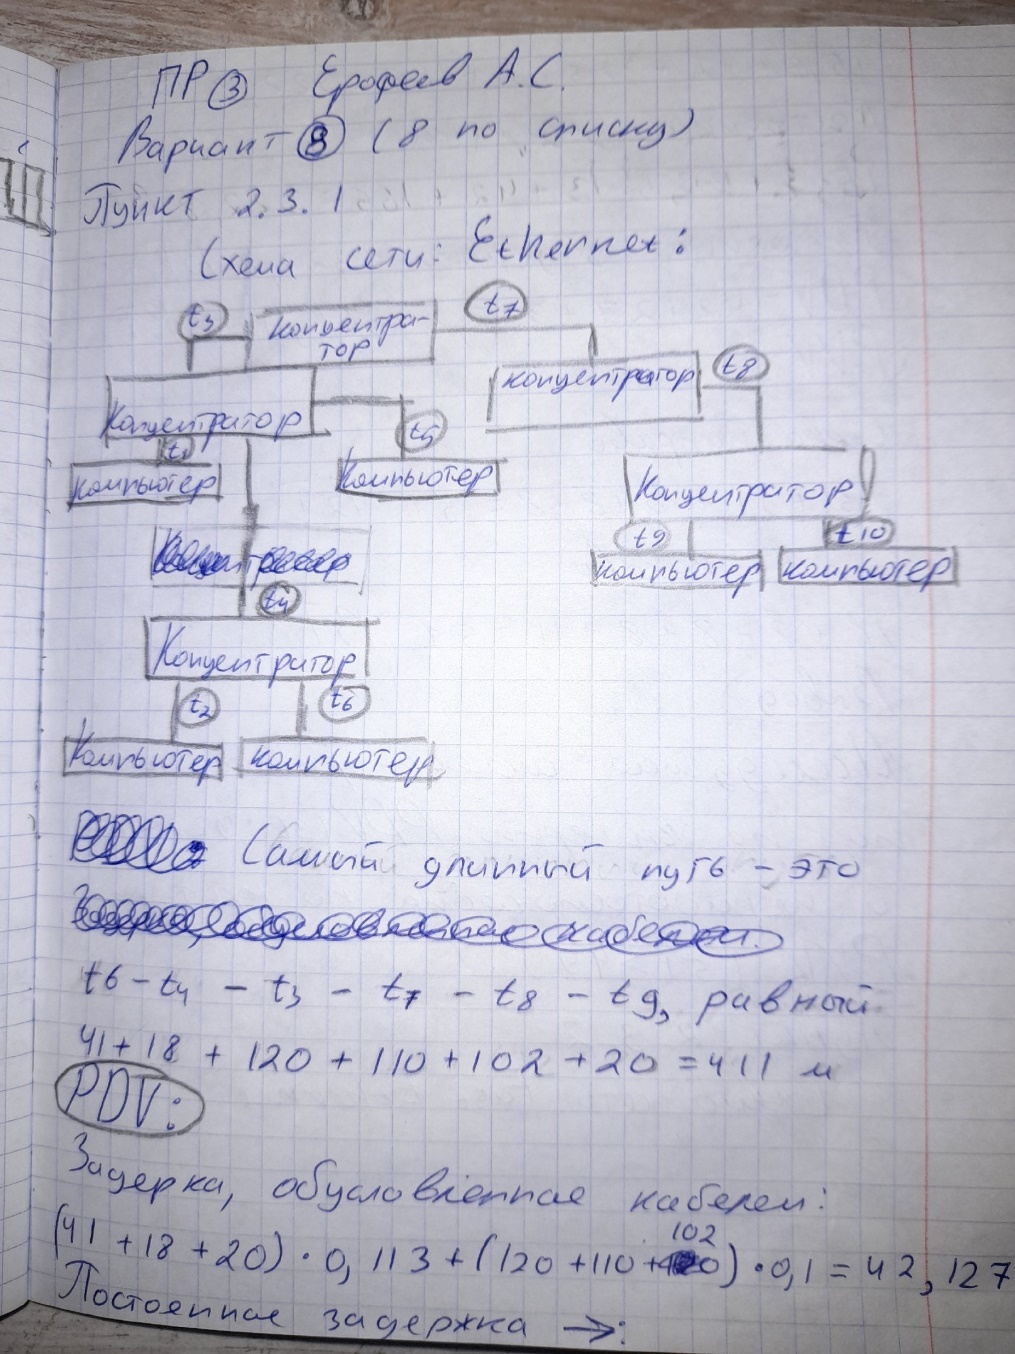 ПР ③ Ерофеев А.С.
Вариант 8 (8 по списку)
Пункт 2.3.1
Схема сети: Ethernet:
t3
концентра-
тор
t7
Концентратор
концентратор
t8
t1
t5
Компьютер
Компьютер
Концентратор
t9
t10
компьютер
компьютер
t4
Концентратор
t2
t6
Компьютер
компьютер
Самый длинный путь – это
t6 – t4 – t3 – t7 – t8 – t9, равный
41 + 18 + 120 + 110 + 102 + 20 = 411 м
PDV:
Задерка, обусловленная кабелем:
102
(41 + 18 + 20) · 0,113 + (120 + 110 + ) · 0,1 = 42,127
Постоенная задержка →: